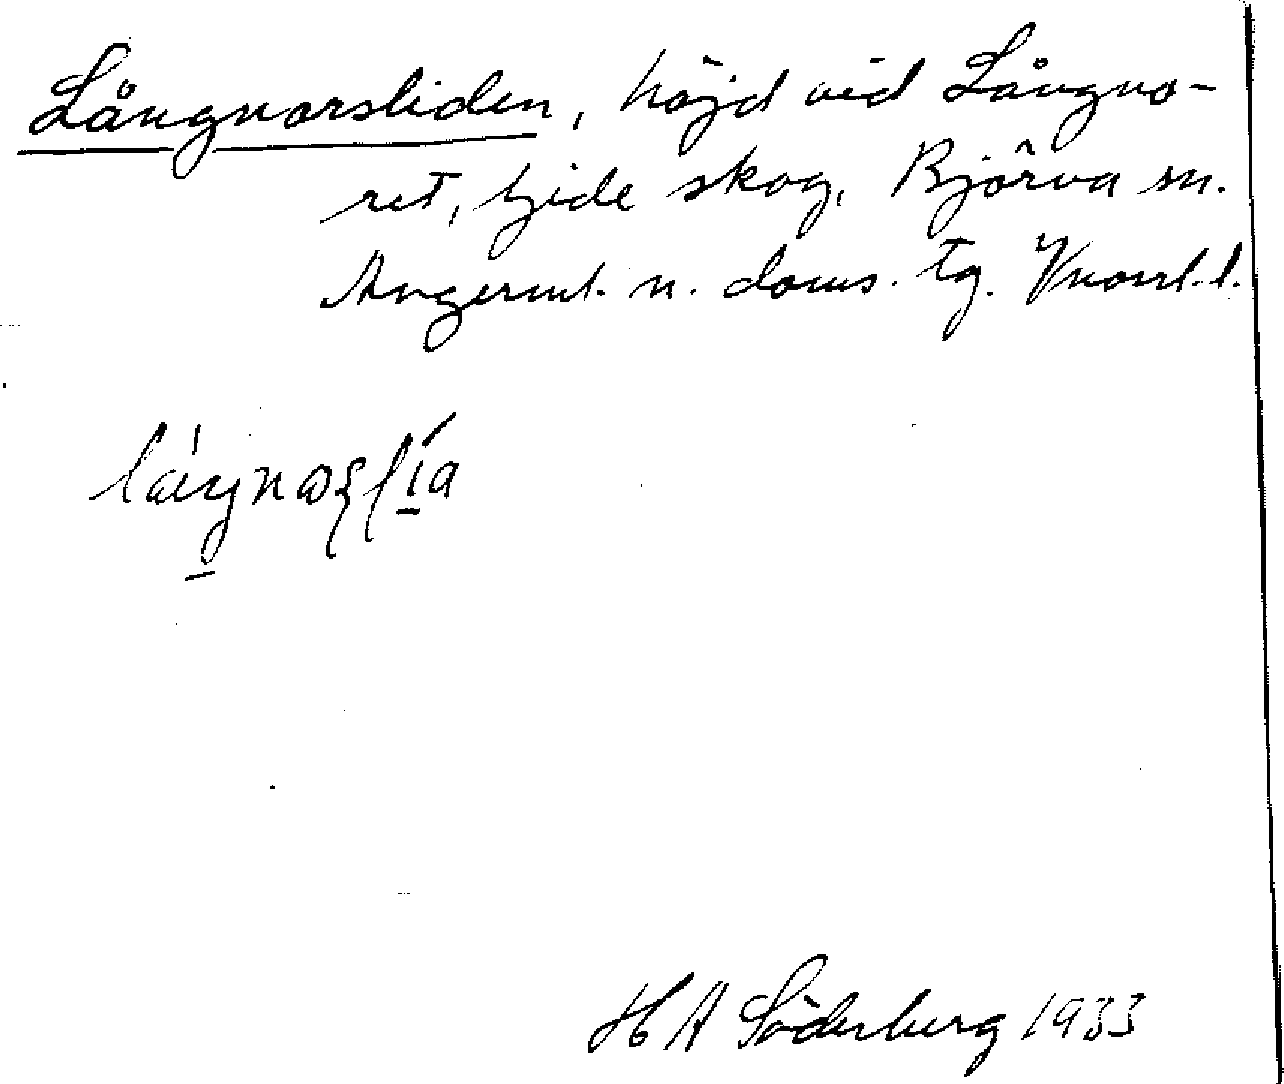 Långnorsliden, höjd vid Långno-
ret, Gide skog, Björna sn.
Ångerml. n. doms. tg. Vnorrl. l.
H A Söderberg 1933